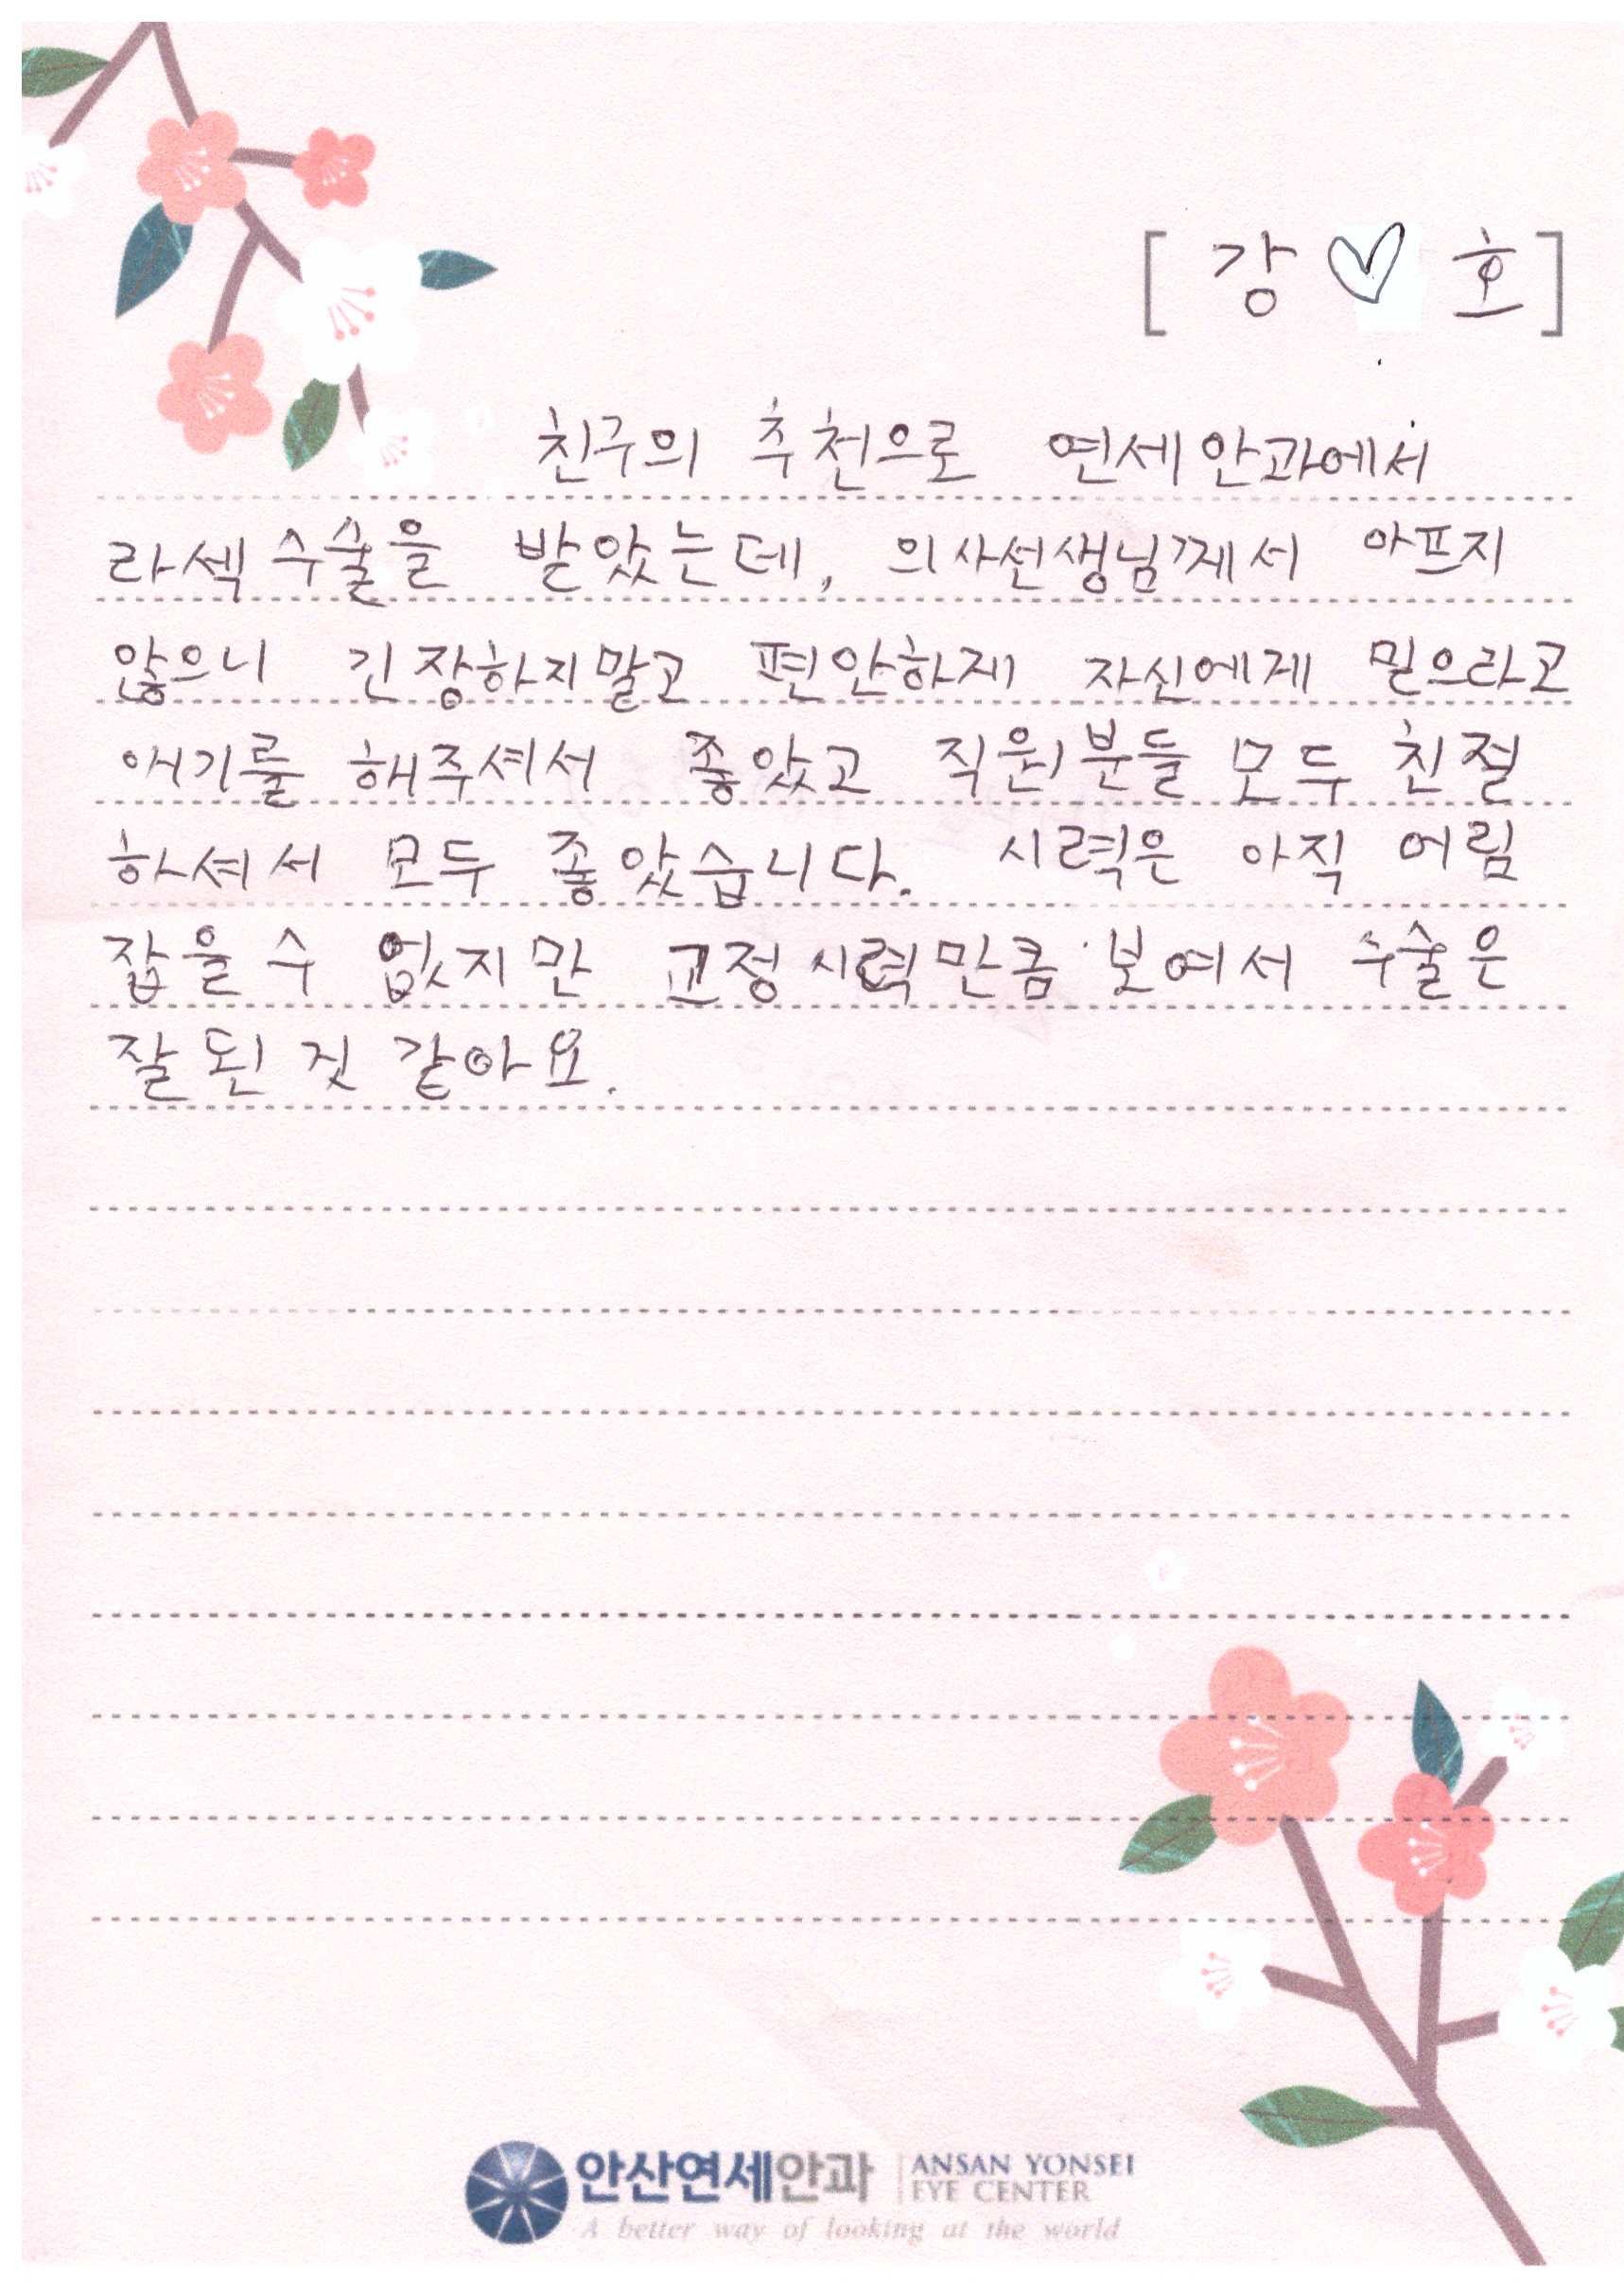 [ 강♡호 ]
친구의 추천으로 연세안과에서
라섹수술을 받았는데, 의사선생님께서 아프지
않으니 긴장하지말고 편안하게 자신에게 믿으라고
얘기를 해주셔서 좋았고 직원분들 모두 친절
하셔서 모두 좋았습니다. 시력은 아직 어림
잡을 수 없지만 교정시력만큼 보여서 수술은
잘 된 것 같아요.
안산연세안과 | ANSAN YONSEI
EYE CENTER
A better way of looking at the world